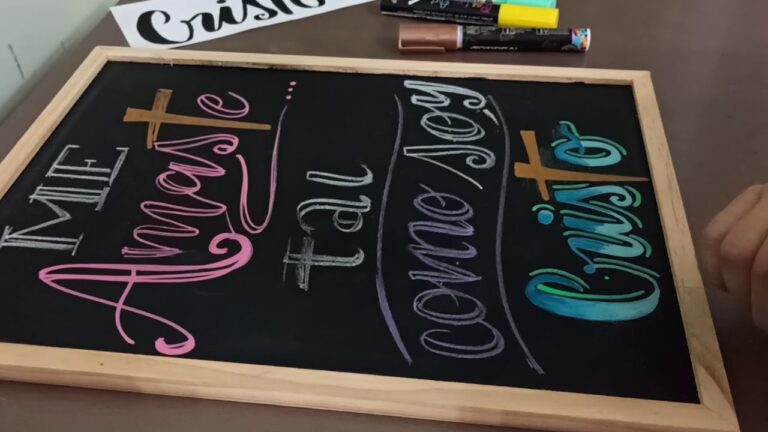 Cristo
ME
Amaste ...
tal
como soy
Cristo